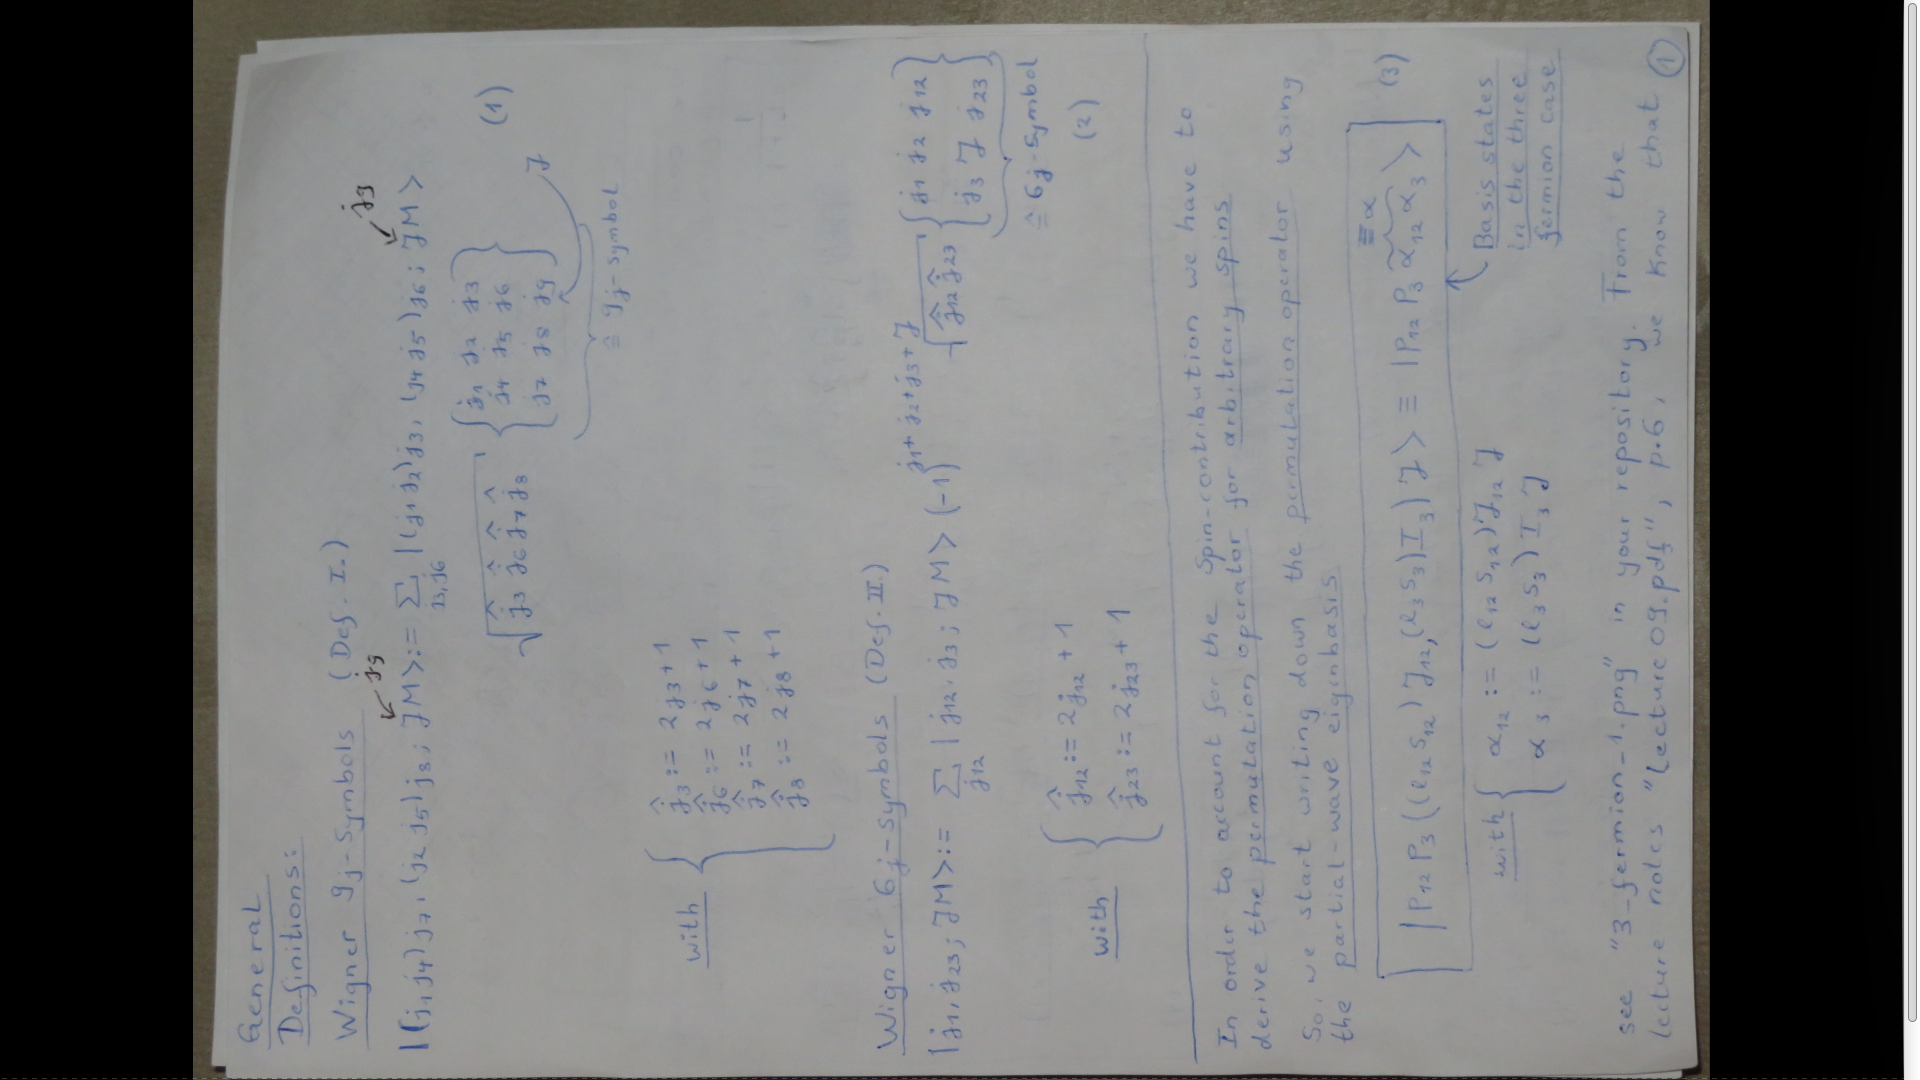 General
Definitions:
Wigner 9j-Symbols (Def. I.)
|(j₁j₄)j₇, (j₂j₅)j₈; JM> := Σ_{j₃,j₆} |(j₁j₂)j₃, (j₄j₅)j₆; JM>
↙ j₉ ↙ j₉
√(ĵ₃ ĵ₆ ĵ₇ ĵ₈) { j₁ j₂ j₃
j₄ j₅ j₆
j₇ j₈ j₉ } J (1)
≙ 9j-Symbol
with { ĵ₃ := 2j₃+1
ĵ₆ := 2j₆+1
ĵ₇ := 2j₇+1
ĵ₈ := 2j₈+1
Wigner 6j-Symbols (Def. II.)
|j₁, j₂₃; JM> := Σ_{j₁₂} |j₁₂, j₃; JM> (-1)^{j₁+j₂+j₃+J} √(ĵ₁₂ ĵ₂₃) { j₁ j₂ j₁₂
j₃ J j₂₃ }
≙ 6j-Symbol
(2)
with { ĵ₁₂ := 2j₁₂+1
ĵ₂₃ := 2j₂₃+1
In order to account for the Spin-contribution we have to
derive the permutation operator for arbitrary spins
So, we start writing down the permutation operator using
the partial-wave eigenbasis
|P₁₂ P₃ ((l₁₂ s₁₂) J₁₂, (l₃ s₃) I₃) J> ≡ |P₁₂ P₃ α₁₂ α₃> (3)
≡ α
with { α₁₂ := (l₁₂ s₁₂) J₁₂ J
α₃ := (l₃ s₃) I₃ J
Basis states
in the three
fermion case
see "3-fermion-1.png" in your repository. From the
lecture notes "Lecture09.pdf", p.6, we know that
①